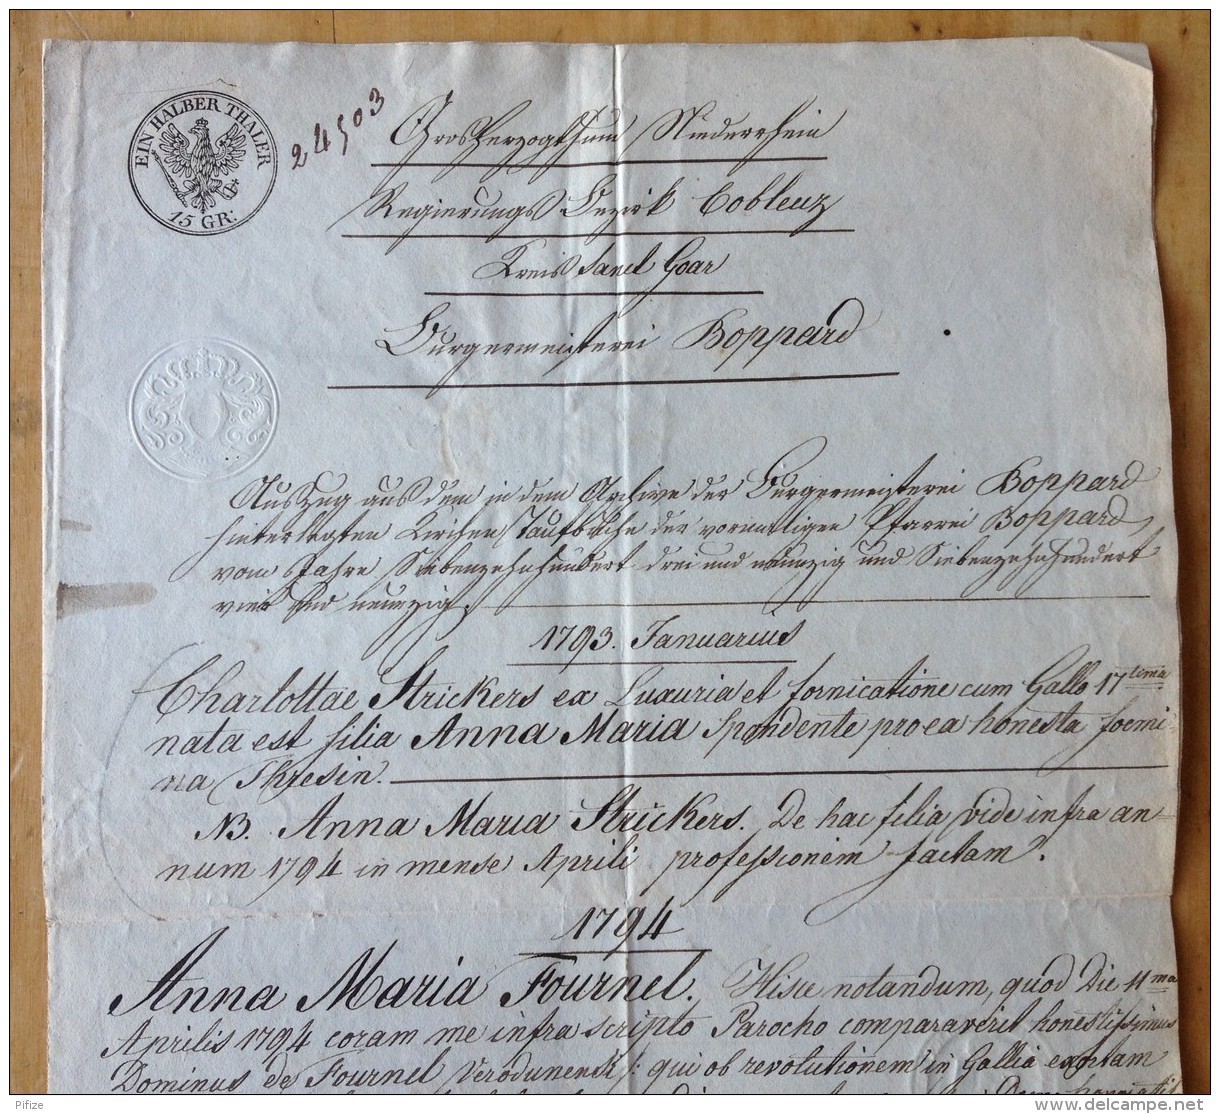 EIN HALBER THALER
15 GR:
24503
Grosherzogthum Niederrhein
Regierungs Bezirk Coblenz
Kreis Sanct Goar
Burgermeisterei Boppard
Auszug aus dem in dem Archive der Burgermeisterei Boppard
hinterlegten Kirchen Taufbuche der vormaligen Pfarrei Boppard,
vom Jahre Siebenzehnhundert drei und neunzig und Siebenzehnhundert
vier und neunzig.
1793. Januarius
Charlottae Strickers ex Luxuria et fornicatione cum Gallo 17tima
nata est filia Anna Maria Spondente pro ea honesta foemi
na Thresin.
NB. Anna Maria Strickers. De hac filia vide infra an-
num 1794 in mense Aprili professionem factam.
1794
Anna Maria Fournel. Hisce notandum, quod Die 11ma
Aprilis 1794 coram me infra scripto Parocho comparaverit honestissimus
Dominus de Fournel Verodunensis: qui ob revolutionem in Gallia exortam
Pifize
www.delcampe.net